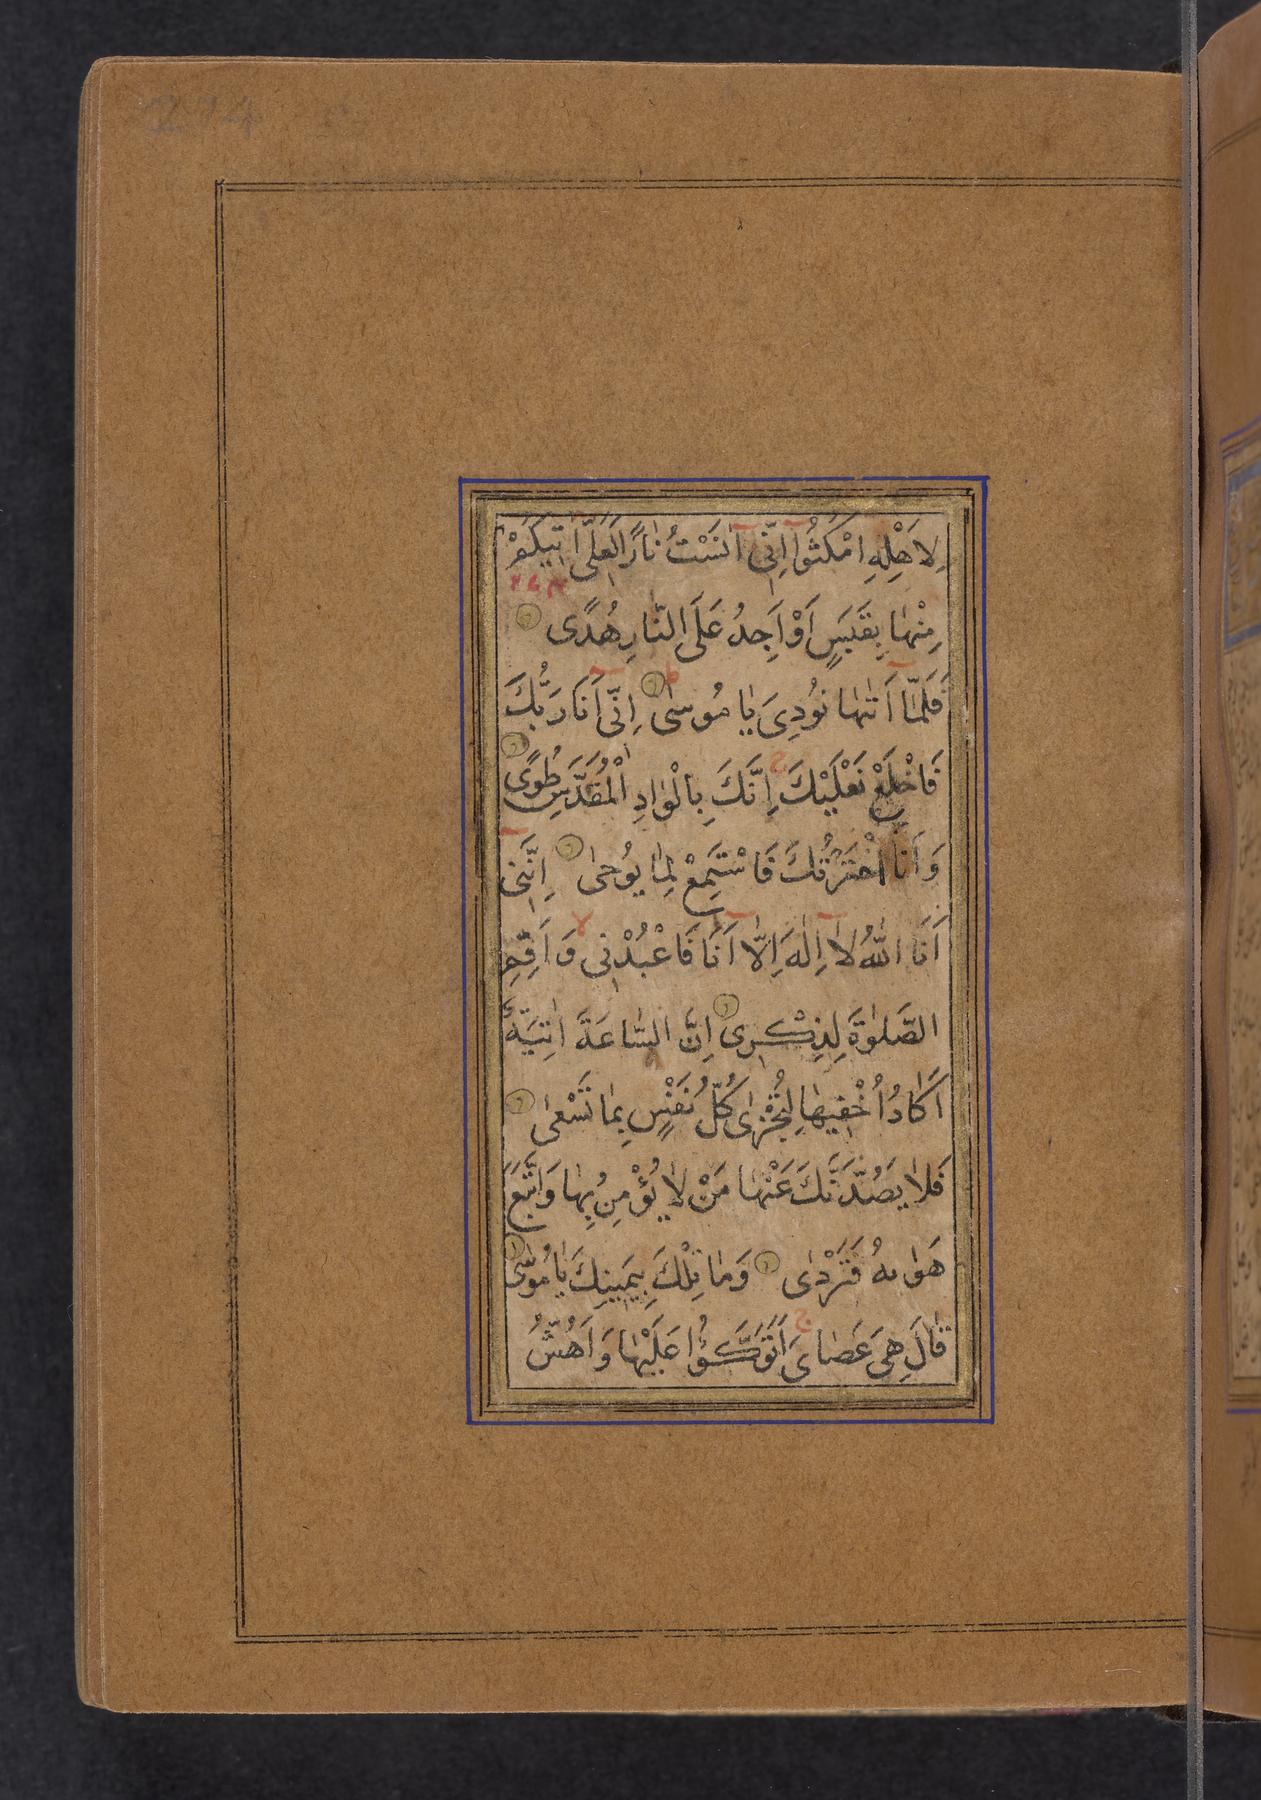 274
لِاَهْلِهِ امْكُثُوٓا اِنّٖٓى اٰنَسْتُ نَارًا لَعَلّٖٓى اٰتٖيكُمْ
مِنْهَا بِقَبَسٍ اَوْ اَجِدُ عَلَى النَّارِ هُدًى
فَلَمَّٓا اَتٰيهَا نُودِىَ يَا مُوسٰى اِنّٖٓى اَنَا رَبُّكَ
فَاخْلَعْ نَعْلَيْكَ اِنَّكَ بِالْوَادِ الْمُقَدَّسِ طُوًى
وَاَنَا اخْتَرْتُكَ فَاسْتَمِعْ لِمَا يُوحٰى اِنَّنٖٓى
اَنَا اللّٰهُ لَٓا اِلٰهَ اِلَّٓا اَنَا فَاعْبُدْنٖى وَاَقِمِ
الصَّلٰوةَ لِذِكْرٖى اِنَّ السَّاعَةَ اٰتِيَةٌ
اَكَادُ اُخْفٖيهَا لِتُجْزٰى كُلُّ نَفْسٍ بِمَا تَسْعٰى
فَلَا يَصُدَّنَّكَ عَنْهَا مَنْ لَا يُؤْمِنُ بِهَا وَاتَّبَعَ
هَوٰيهُ فَتَرْدٰى وَمَا تِلْكَ بِيَمٖينِكَ يَا مُوسٰى
قَالَ هِىَ عَصَاىَ اَتَوَكَّؤُا عَلَيْهَا وَاَهُشُّ